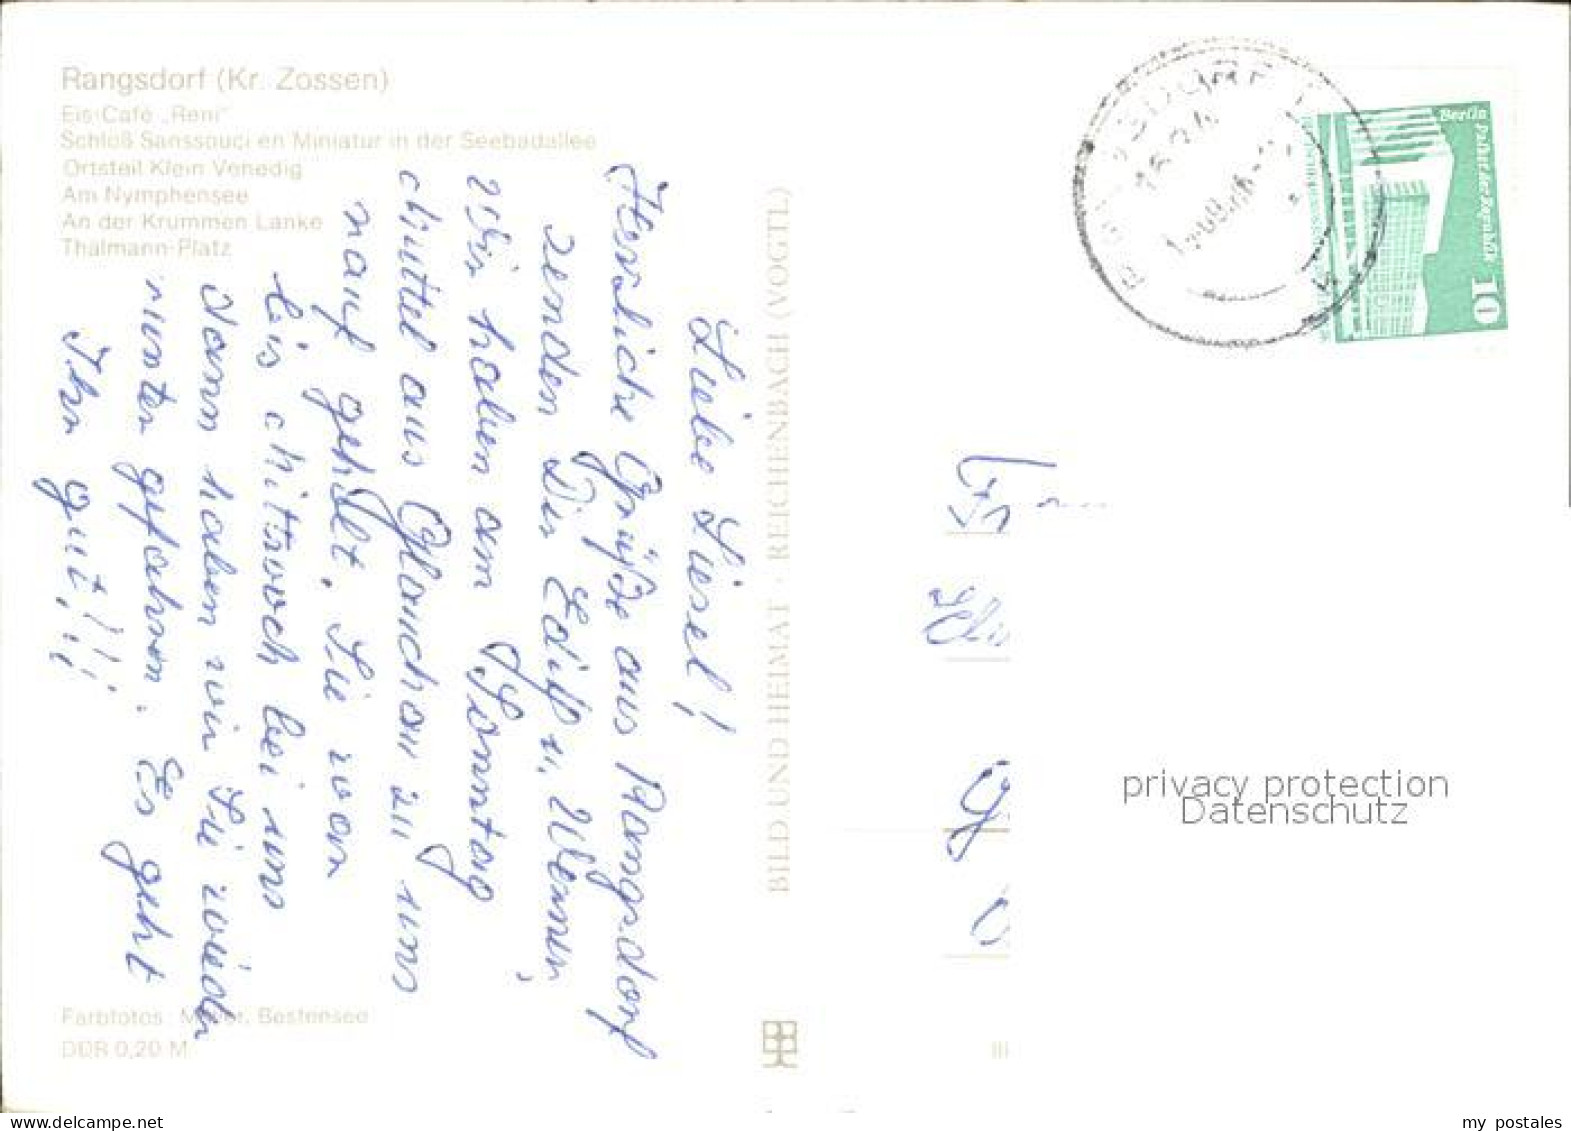 Rangsdorf (Kr. Zossen)
Eis-Café „Reni"
Schloß Sanssouci en Miniatur in der Seebadallee
Ortsteil Klein Venedig
Am Nymphensee
An der Krummen Lanke
Thälmann-Platz
Liebe Liesel!
Herzliche Grüße aus Rangsdorf
senden Dir Edith u. Werner
Wir haben am Sonntag
aus Glauchau zu uns
rauf geholt. Sie war
bis Mittwoch bei uns
dann haben wir Sie wieder
runter gefahren. Es geht
Ihr gut!!!!
Farbfotos: Müller, Bestensee
DDR 0,20 M
BILD UND HEIMAT · REICHENBACH (VOGTL)
1634
Berlin Palast der Republik
10
privacy protection
Datenschutz
my postales